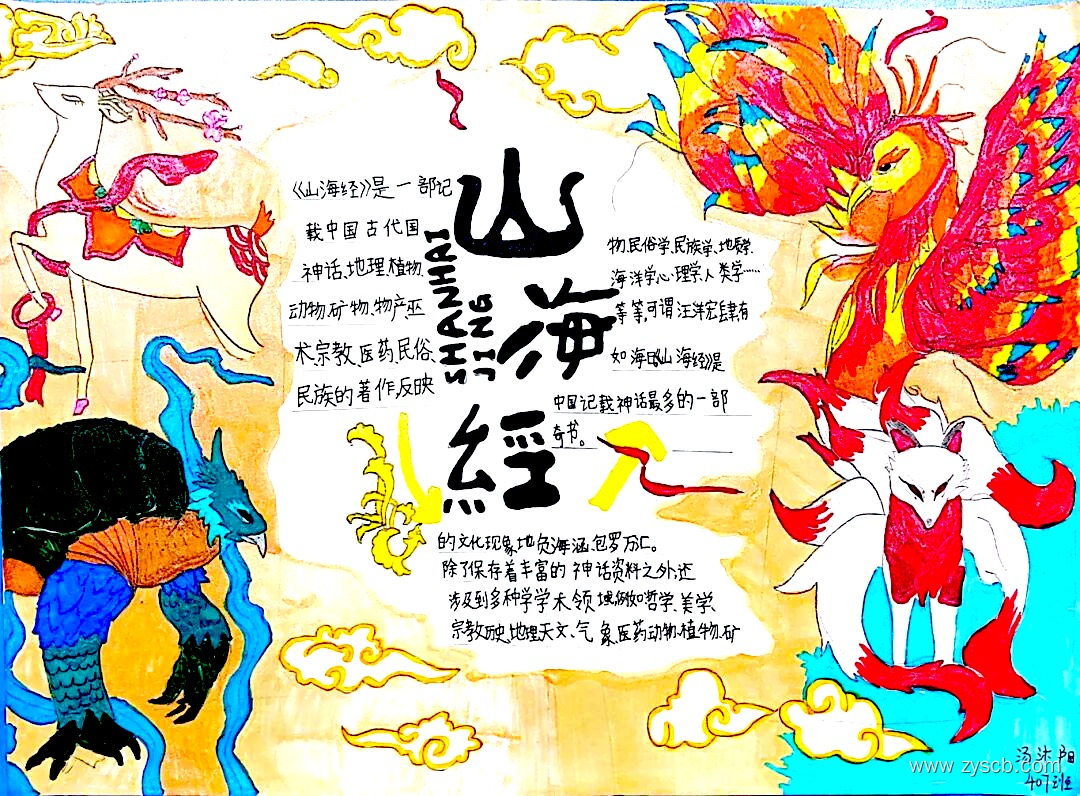 山海經
SHANHAI
JING
《山海经》是一部记
载中国古代国
神话、地理、植物、
动物、矿物、物产巫
术、宗教、医药、民俗、
民族的著作,反映
的文化现象地负海涵、包罗万汇。
除了保存着丰富的神话资料之外,还
涉及到多种学学术领域,例如哲学、美学、
宗教、历史、地理、天文、气象、医药、动物、植物、矿
物、民俗学、民族学、地质学、
海洋学、心理学、人类学……
等等,可谓汪洋宏肆,有
如海日《山海经》是
中国记载神话最多的一部
奇书。
汤沐阳
407班
www.zyscb.com